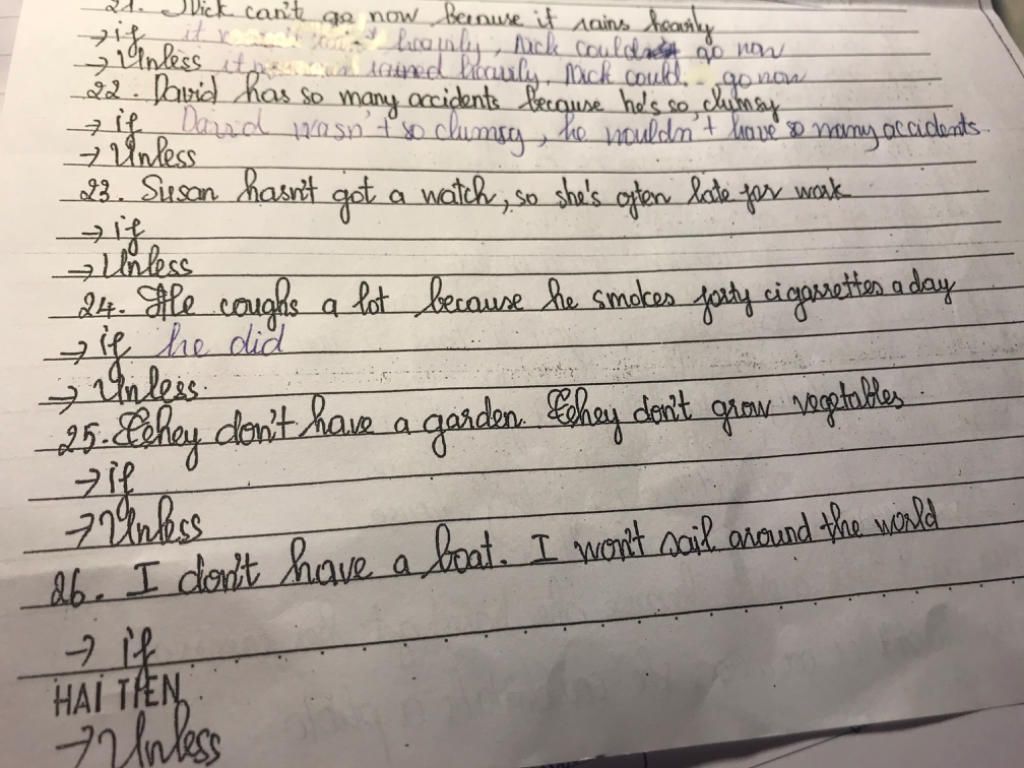 21. Nick can't go now because it rains heavily
→ if it heavily, Nick could go now
→ Unless it rained heavily, Nick could go now
22. David has so many accidents because he's so clumsy
→ if David wasn't so clumsy, he wouldn't have so many accidents.
→ Unless
23. Susan hasn't got a watch, so she's often late for work
→ if
→ Unless
24. He coughs a lot because he smokes forty cigarettes a day
→ if he did
→ Unless.
25. They don't have a garden. They don't grow vegetables.
→ if
→ Unless
26. I don't have a boat. I won't sail around the world
→ if
HẢI TIẾN
→ Unless